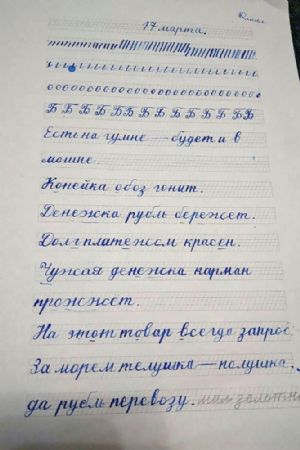 17 марта.
Б Б Б Б Б Б Б Б Б Б Б Б Б Б
Есть на гумне — будет и в
мошне.
Копейка обоз гонит.
Денежка рубль бережет.
Долг платежом красен.
Чужая денежка карман
прожжет.
На этот товар всегда запрос.
За морем телушка — полушка,
да рубль перевозу.